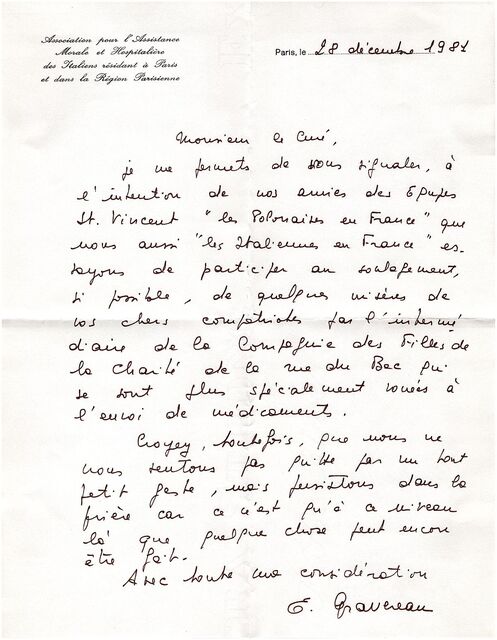 Association pour l'Assistance
Morale et Hospitalière
des Italiens résidant à Paris
et dans la Région Parisienne
Paris, le 28 décembre 1981
Monsieur le Curé,
je me permets de vous signaler, à
l'intention de vos amies des Equipes
St. Vincent "les Polonaises en France" que
nous aussi "les Italiennes en France" es-
sayons de participer au soulagement,
si possible, de quelques misères de
vos chers compatriotes par l'intermé
diaire de la Compagnie des Filles de
la Charité de la rue du Bac qui
se sont plus spécialement vouées à
l'envoi de médicaments.
Croyez, toutefois, que nous ne
nous sentons pas quitte par un tout
petit geste, mais persistons dans la
prière car ce n'est qu'à ce niveau
là que quelque chose peut encore
être fait.
Avec toute ma considération
E. Gravereau